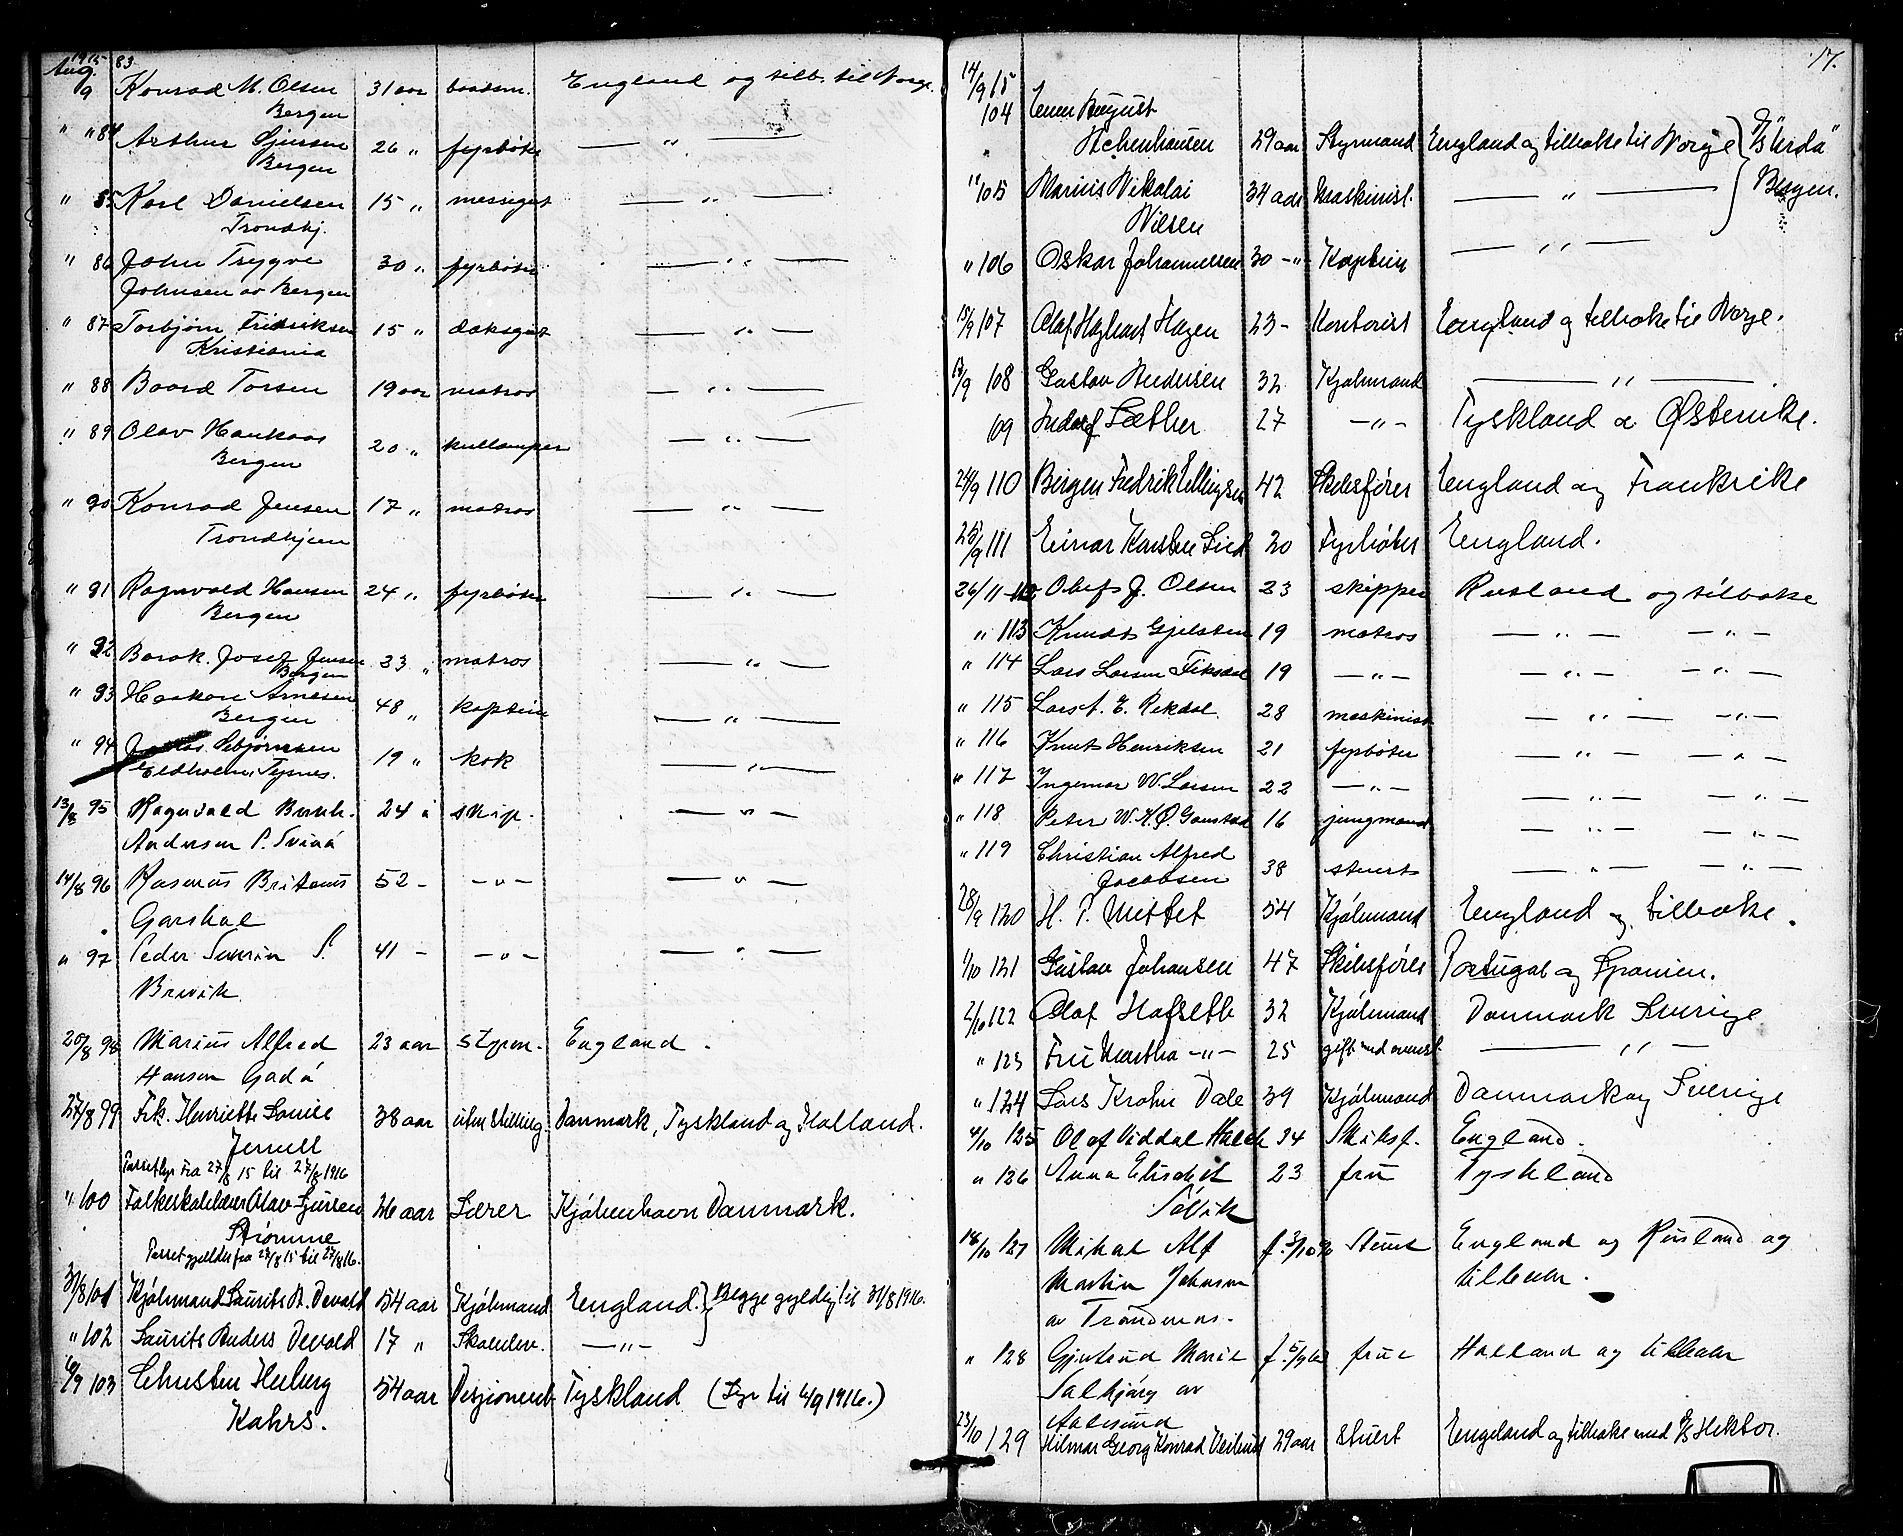 1915 83
Aug. 9 Konrad M. Olsen 31 aar baadsm. England og tilb. til Norge.
Bergen
" " 84 Arthur 26 " fyrbøter — " —
Bergen
" 85 Karl Danielsen 15 " messegut — " —
Trondhj.
" 86 John Trygve 30 " fyrbøter — " —
Johnsen av Bergen
" 87 Torbjørn Fredriksen 15 " dæksgut — " —
Kristiania
" 88 Baard Torsen 19 aar matros — " —
" 89 Olav Haukaas 20 " kullemper — " —
Bergen
" 90 Konrad Jensen 17 " matros — " —
Trondhjem
" 91 Ragnvald Hansen 24 " fyrbøter — " —
Bergen
" 92 Josef Jensen 23 " matros — " —
Bergen
" 93 Haakon Arnesen 48 " kaptein — " —
Bergen
" 94 19 " kok — " —
Eldholm, Tysnes.
13/8 95 Ragnvald 24 " skip. — " —
Andersen P.
14/8 96 Rasmus 52 - - " - — " —
" 97 Peder 41 - - " - — " —
Brevik
20/8 98 Marius Alfred 23 aar styrm. England.
Hansen Gadø
27/8 99 Frk. Henriette Louise 38 aar uten stilling. Danmark, Tyskland og Holland.
Passet lyr fra 27/8 15 til 27/8 1916
" 100 Folkeskolelærer Olav Sjursen 26 aar Lærer Kjøbenhavn Danmark.
Strømme
Passet gjelder fra 27/8 15 til 27/8 16.
31/8 101 Kjøbmand Laurits A. Devold 54 aar Kjøbmand England. } Begge gyldig til 31/8 1916.
" 102 Laurits Anders Devold 17 " Skoleelev. — " —
6/9 103 Christen Heiberg 54 aar Tyskland (Lyr til 6/9 1916.)
Kahrs.
17.
14/9 15
104 Einar August
Achenhausen 29 aar Styrmand England og tilbake til Norge } D/S "Urda"
" 105 Marius Nikolai 34 aar Maskinist. — " — Bergen.
Nilsen
" 106 Oskar Johannessen 30 - " Kaptein — " —
15/9 107 Olaf Hagbart Hagen 23 - Kontorist England og tilbake til Norge.
108 Gustav Andersen 32 Kjøbmand — " —
109 Sæther 27 - " - Tyskland & Østerrike.
24/9 110 Birger Fredrik Ellingsen 42 Skibsfører England og Frankrike
25/9 111 Einar Karsten Lied 20 Fyrbøter England.
26/ 112 J. Olsen 23 skipper Rusland og tilbake
" 113 Knudt Gjelsten 19 matros — " — — " —
" 114 Lars Larsen Fiksdal 19 — " — — " — — " —
" 115 Lars A. E. Rekdal 28 maskinist — " — — " —
" 116 Knut Henriksen 21 fyrbøter — " — — " —
" 117 Ingemar W. Larsen 22 — " — — " — — " —
" 118 Peter W. K. Ø. Gamstad 16 jungmand — " — — " —
" 119 Christian Alfred
Jacobsen 38 stuert — " — — " —
28/9 120 H. P. Mittet 54 Kjøbmand England og tilbake.
1/10 121 Gustav Johansen 47 Skibsfører Portugal og Spanien.
2/10 122 Olaf Hofseth 32 Kjøbmand Danmark Sverige
" 123 Fru Martha — " — 25 gift med ovenst. — " —
" 124 Lars Krohn Dale 39 Kjøbmand Danmark og Sverige
4/10 125 Olaf Viddal Hatch 34 Skibsf. England.
" 126 Anna Elisabet 23 fru Tyskland
Søvik
18/10 127 Mikal Alf f. 3/10 90 Stuert England og Rusland og
Martin Johnson tilbake.
av Trondenes.
" 128 Gjertrud Marie frue Holland og tilbake
av
Aalesund
23/10 129 Hilmar Georg Konrad 29 aar Stuert England og tilbake med D/S Hektor.